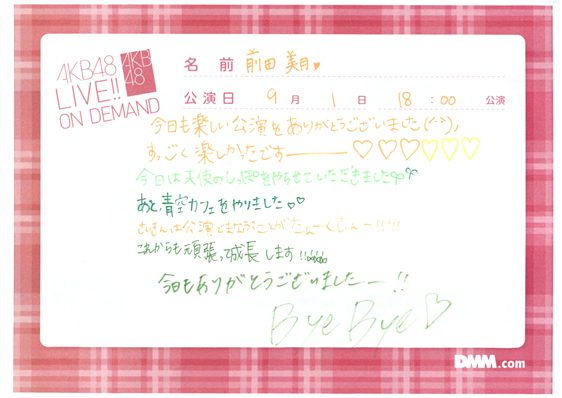 AKB48
LIVE!!
ON DEMAND
AKB
48
名前 前田 美月♥
公演日 9月 1日 18:00 公演
今日も楽しい公演をありがとうございました(^-^)ノ
すっごく楽しかったです――♡♡♡♡♡♡
今日は天使のしっぽをやらせていただきました
あと、青空カフェをやりました♡♡
は公演
これからも頑張って成長します!!
今日もありがとうございましたー!!
Bye Bye♡
DMM.com